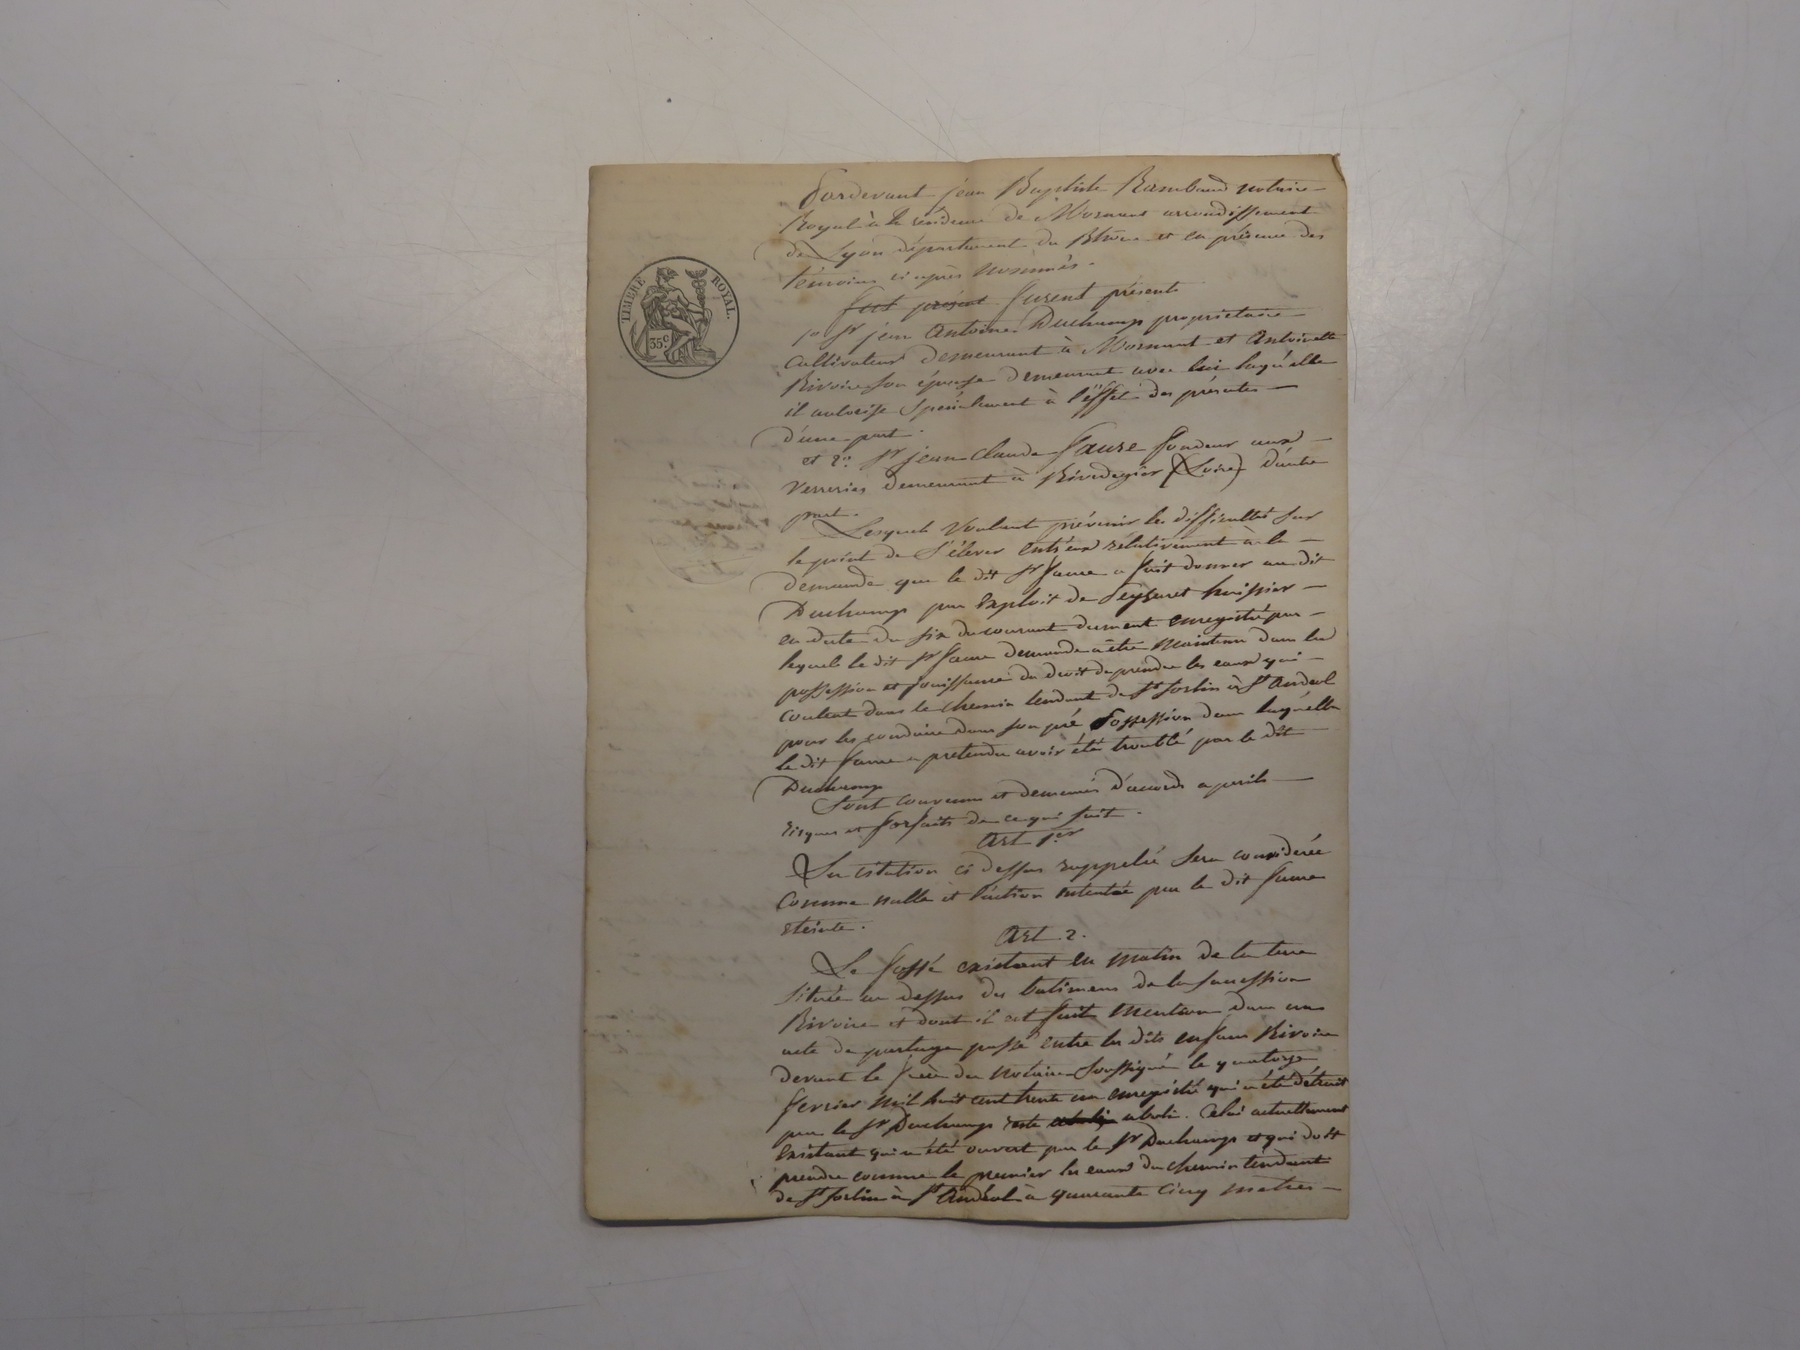 TIMBRE ROYAL.
35 c
Pardevant jean Baptiste Rambaud notaire
Royal à la résidence de Mornant arrondissement
de Lyon département du Rhône et en présence des
témoins ci après nommés.
fut présent furent présents
1° Sr jean Antoine Duchamp propriétaire
cultivateur demeurant à Mornant et Antoinette
Rivoire son épouse demeurant avec lui laquelle
il autorise spécialement à l'effet des présentes
d'une part.
et 2° Sr jean Claude Faure fondeur aux
verreries demeurant à Rivedegier (Loire) d'autre
part.
Lesquels voulant prévenir les difficultés sur
le point de s'élever entr'eux rélativement à la
demande que le dit Sr faure a fait donner au dit
Duchamp par exploit de huissier
en date du six du courant dument enregistré par
lequel le dit Sr faure demande à être maintenu dans la
possession et jouissance du droit de prendre les eaux qui
coulent dans le chemin tendant de St Sorlin à St Andéol
pour les conduire dans son pré possession dans laquelle
le dit faure a pretendu avoir été troublé par le dit
Duchamp
Sont convenus et demeurés d'accords a perils
risques et forfaits de ce qui suit.
Art 1er
La citation ci dessus rappelée sera considérée
comme nulle et l'action intentée par le dit faure
eteinte.
Art. 2.
Le fossé existant en matin de la terre
située au dessus des batimens de la succession
Rivoire et dont il est fait mention dans un
acte de partage passé entre les dits enfans Rivoire
devant le père du notaire soussigné le quatorze
fevrier mil huit cent trente un enregistré qui a été détruit
par le Sr Duchamp reste aboli. Celui actuellement
existant qui a été ouvert par le Sr Duchamp et qui doit
prendre comme le premier les eaux du chemin tendant
de St Sorlin à St Andéol à quarante cinq metres